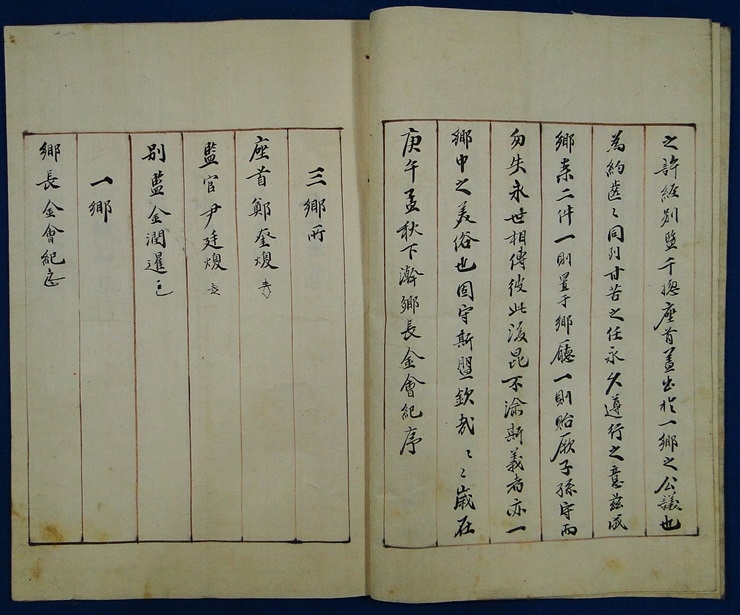 之許經別監千摠座首蓋出於一鄕之公議也
為約蓋〻同列甘苦之任永久遵行之意玆成
鄕案二件一則置于鄕廳一則貽厥子孫守而
勿失永世相傳彼此後昆不渝斯義者亦一
鄕中之美俗也固守斯盟欽哉〻〻歲在
庚午孟秋下澣鄕長金會紀序
三鄕所
座首鄭奎煥
監官尹廷煥
別監金潤暹
一鄕
鄕長金會紀